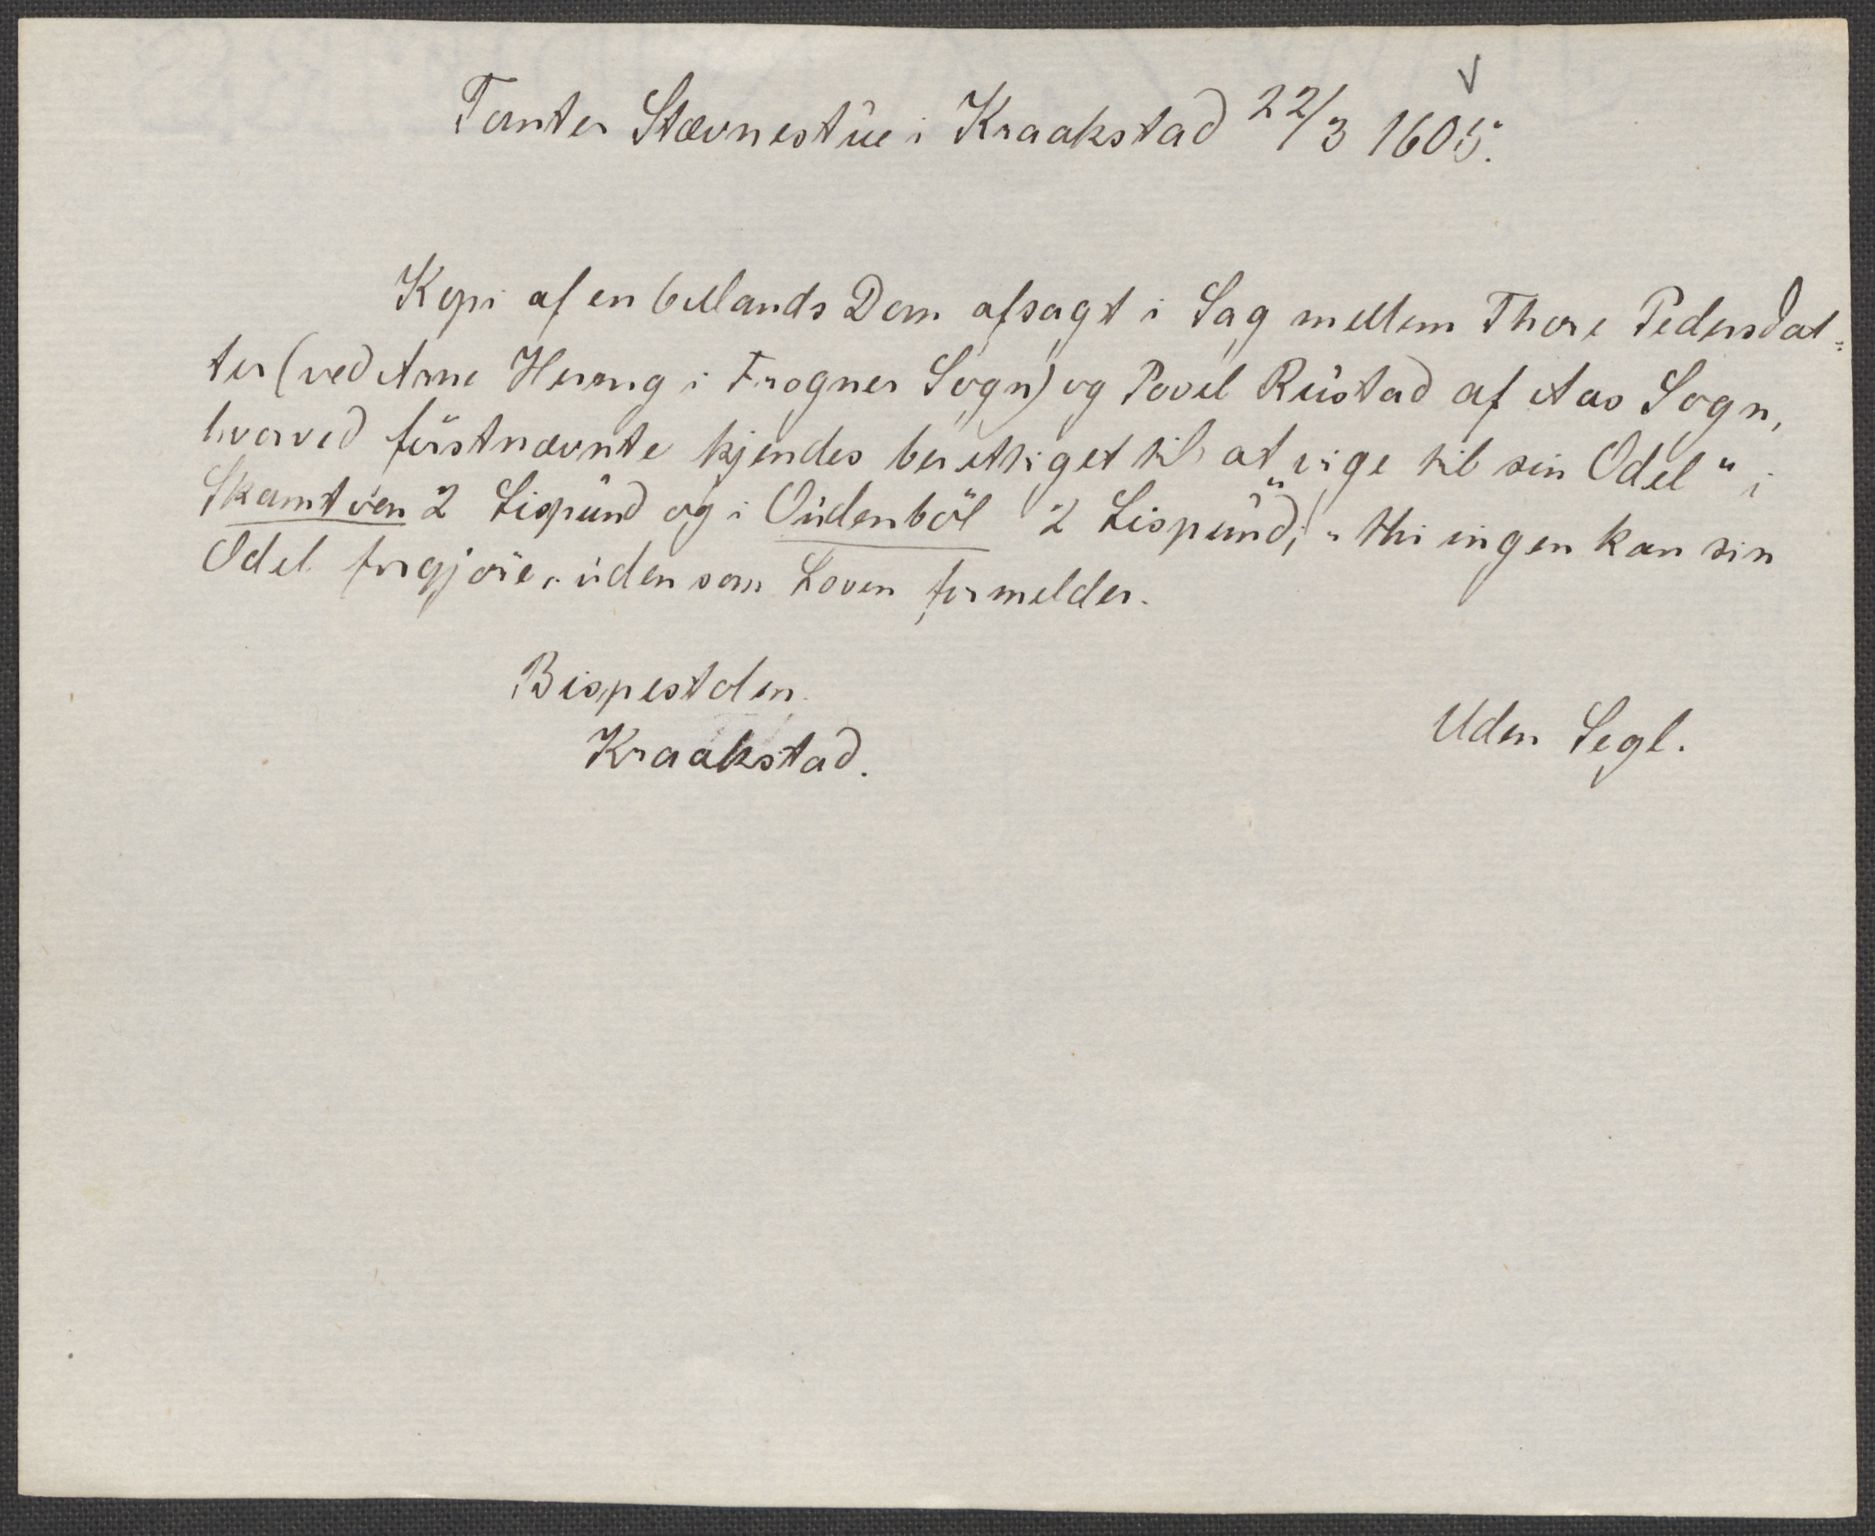 Tomter Stævnestue i Kraakstad 22/3 1605.
Kopi af en 6 Mands Dom afsagt i Sag mellem Thore Pedersdat=
ter (ved Arne Herang i Frogner Sogn) og Povel Rustad af Aas Sogn,
hvorved förstnævnte kjendes berettiget til at "vige til sin Odel" i
Skamtven 2 Lispund og i Oudenböl 2 Lispund; "thi ingen kan sin
Odel forgjøre, uden som Loven formelder.
Bispestolen.
Kraakstad.
Uden Segl.